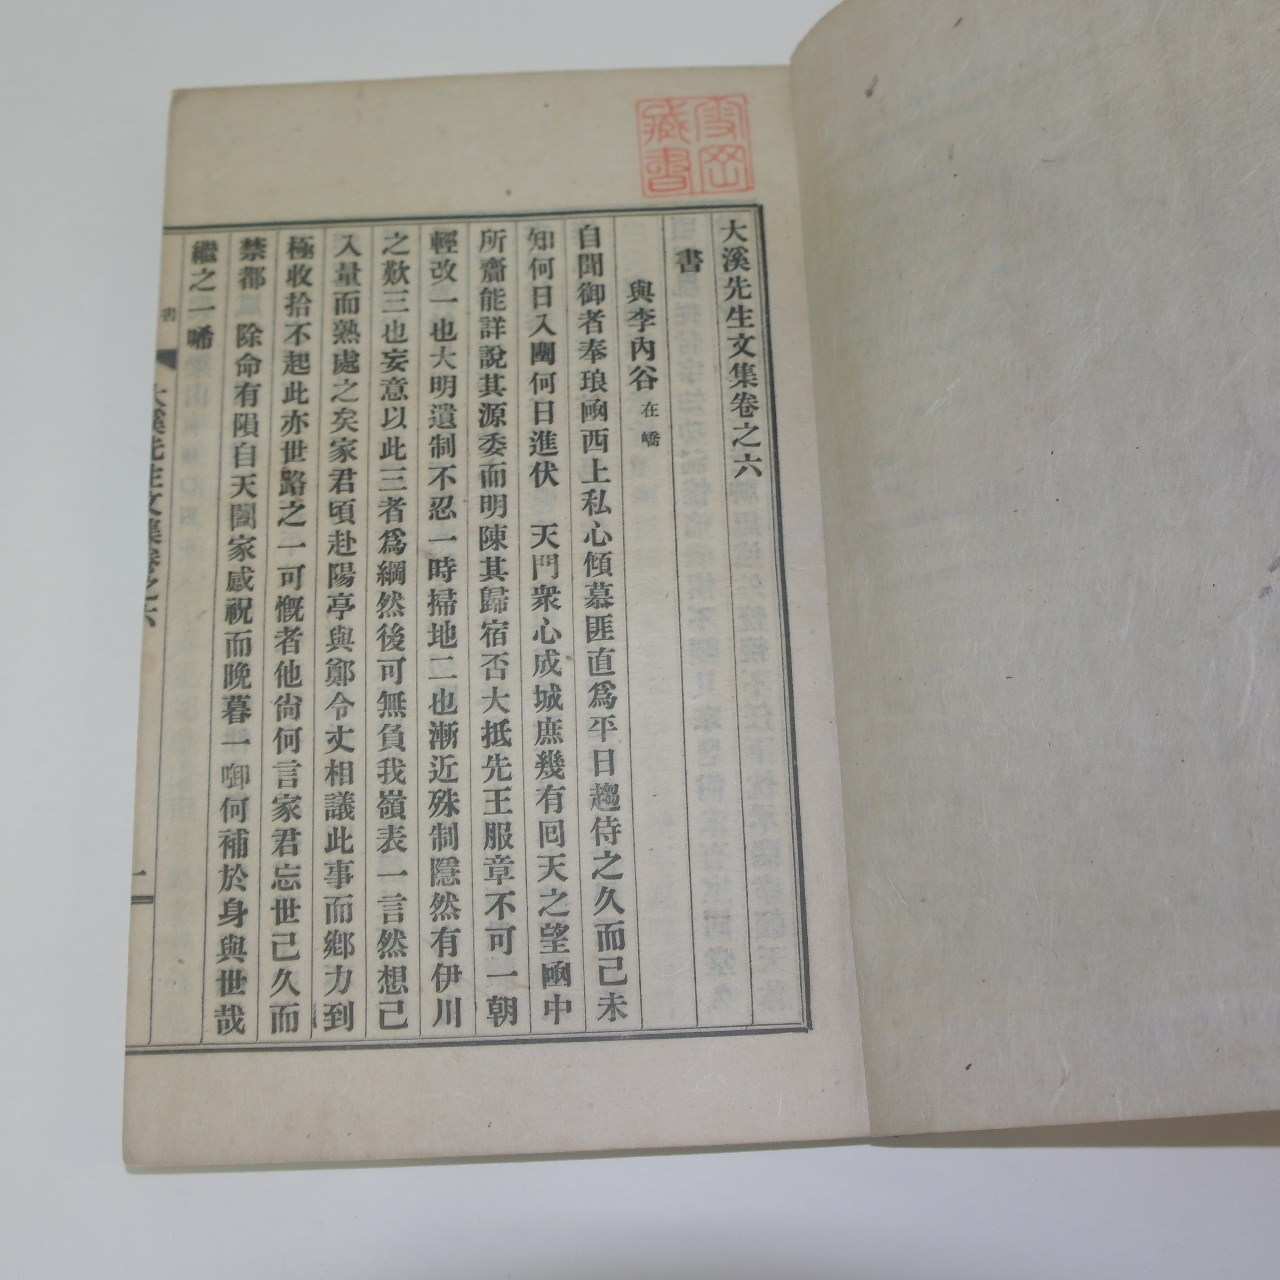 大溪先生文集卷之六
書
與李內谷 在嶠
自聞御者奉琅凾西上私心傾慕匪直爲平日趨侍之久而已未
知何日入闉何日進伏 天門衆心成城庶幾有回天之望凾中
所齎能詳說其源委而明陳其歸宿否大抵先王服章不可一朝
輕改一也大明遺制不忍一時掃地二也漸近殊制隱然有伊川
之歎三也妄意以此三者爲綱然後可無負我嶺表一言然想已
入量而熟處之矣家君頃赴陽亭與鄭令丈相議此事而鄕力到
極收拾不起此亦世路之一可慨者他尙何言家君忘世已久而
禁都 除命有隕自天闔家感祝而晩暮一啣何補於身與世哉
繼之一唏
書
大溪先生文集卷之六
一
雪岡藏書